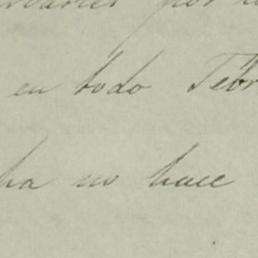 por
en todo Febr
ha no hace